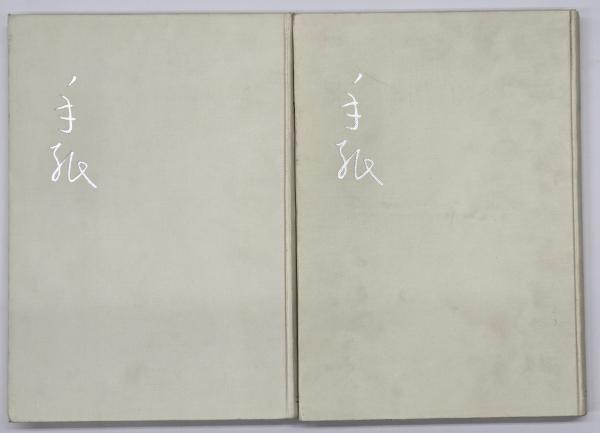 手紙
手紙